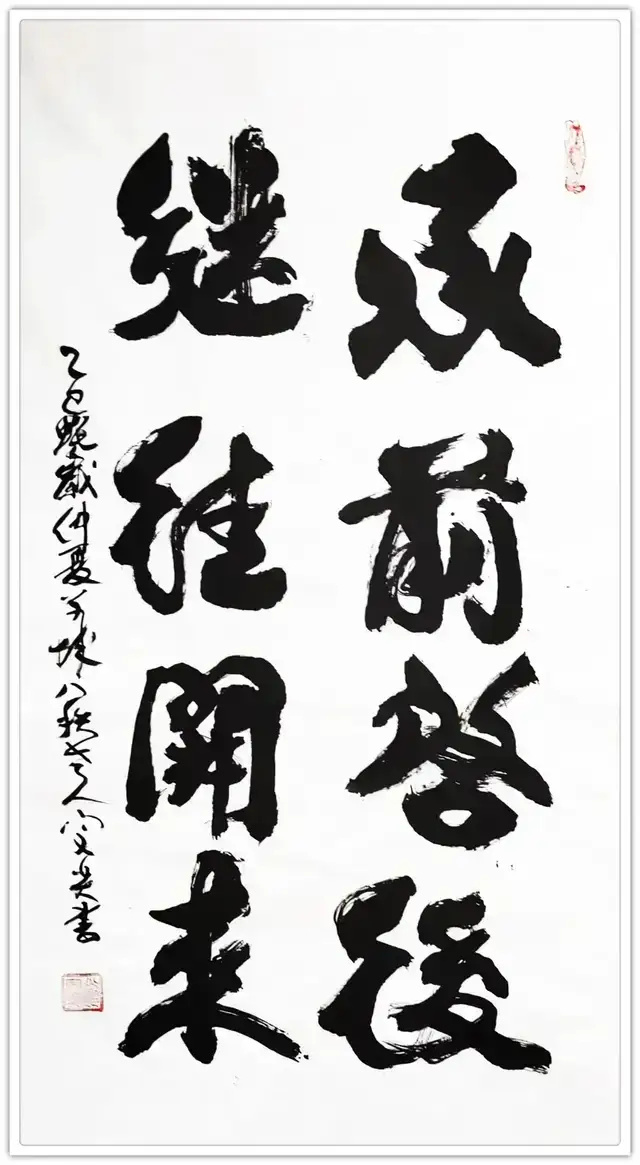 承前啓後
継往開来
乙巳歲仲夏城八秩老人書